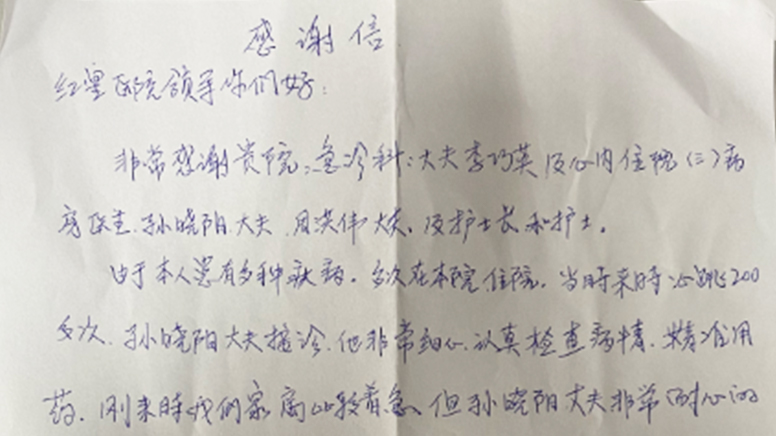 感谢信
红星医院领导你们好：
非常感谢贵院：急诊科：大夫李巧英及心内住院（二）病
房医生.孙晓阳大夫.周洪伟大夫、及护士长和护士。
由于本人患有多种疾病。多次在本院住院.当时来时心跳200
多次.孙晓阳大夫接诊.他非常细心.认真检查病情.精准用
药.刚来时我们家属比较着急、但孙晓阳大夫非常耐心的